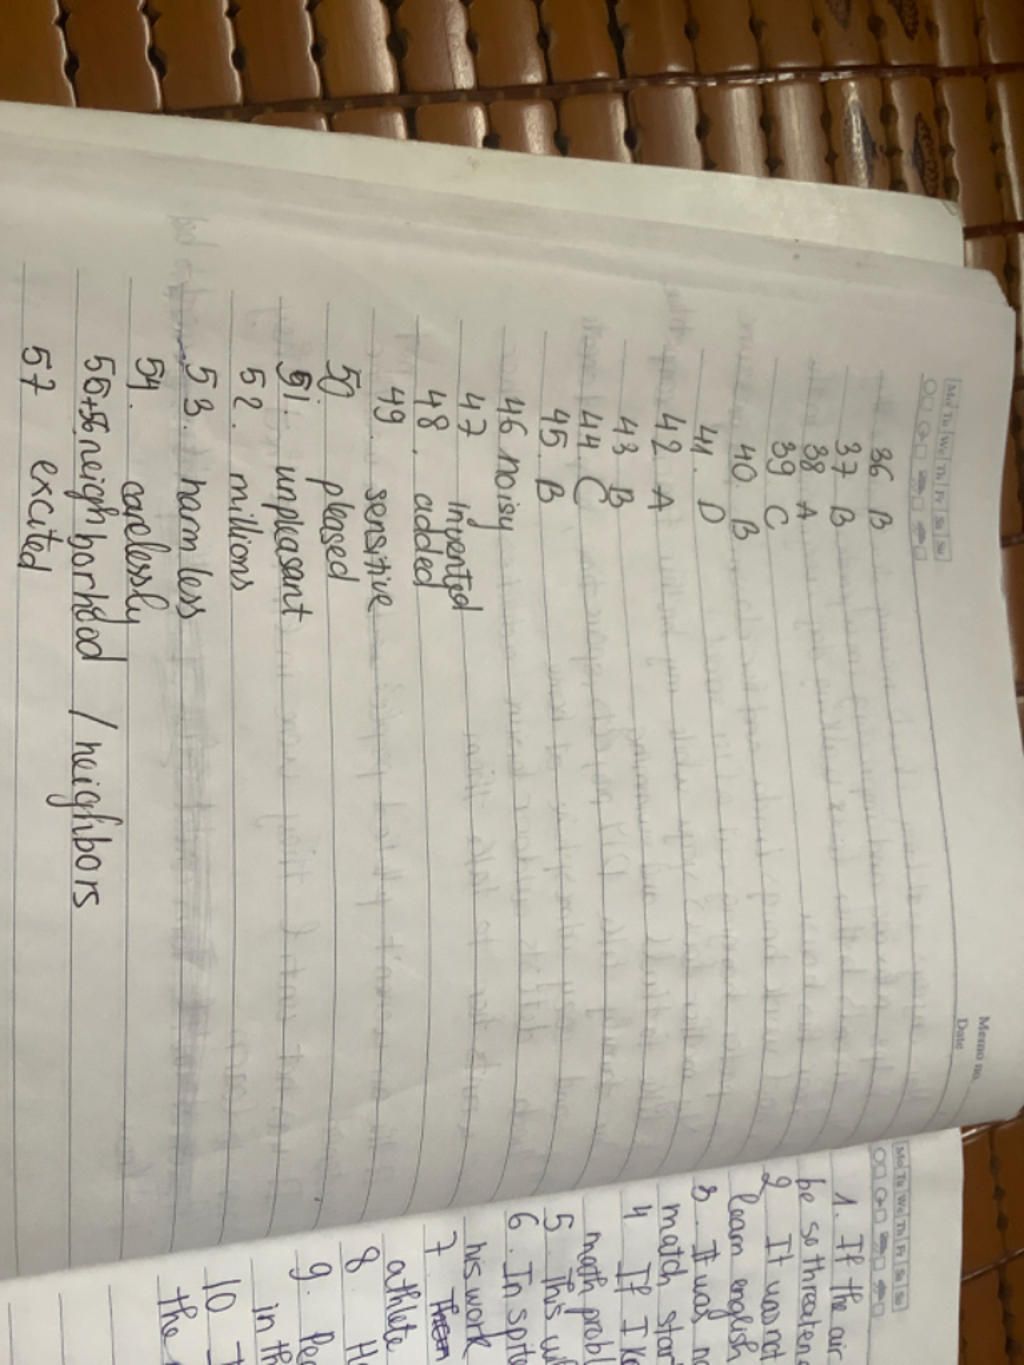 Mo Tu We Th Fr Sa Su
Memo no.
Date
36 B
37 B
38 A
39 C
40. B
41. D
42 A
43 B
44 C
45. B
46 noisy
47 invented
48. added
49. sensitive
50 pleased
51. unpleasant
52. millions
53. harmless
54. carelessly
55+56. neighborhood / neighbors
57 excited
Mo Tu We Th Fr Sa Su
1. If the air
be so threaten
2 It was not
learn english
3. It was no
match star
4 If I
math probl
5 This
6. In spite
his work
7
athlete
8 H
9. Pe
in th
10 T
the